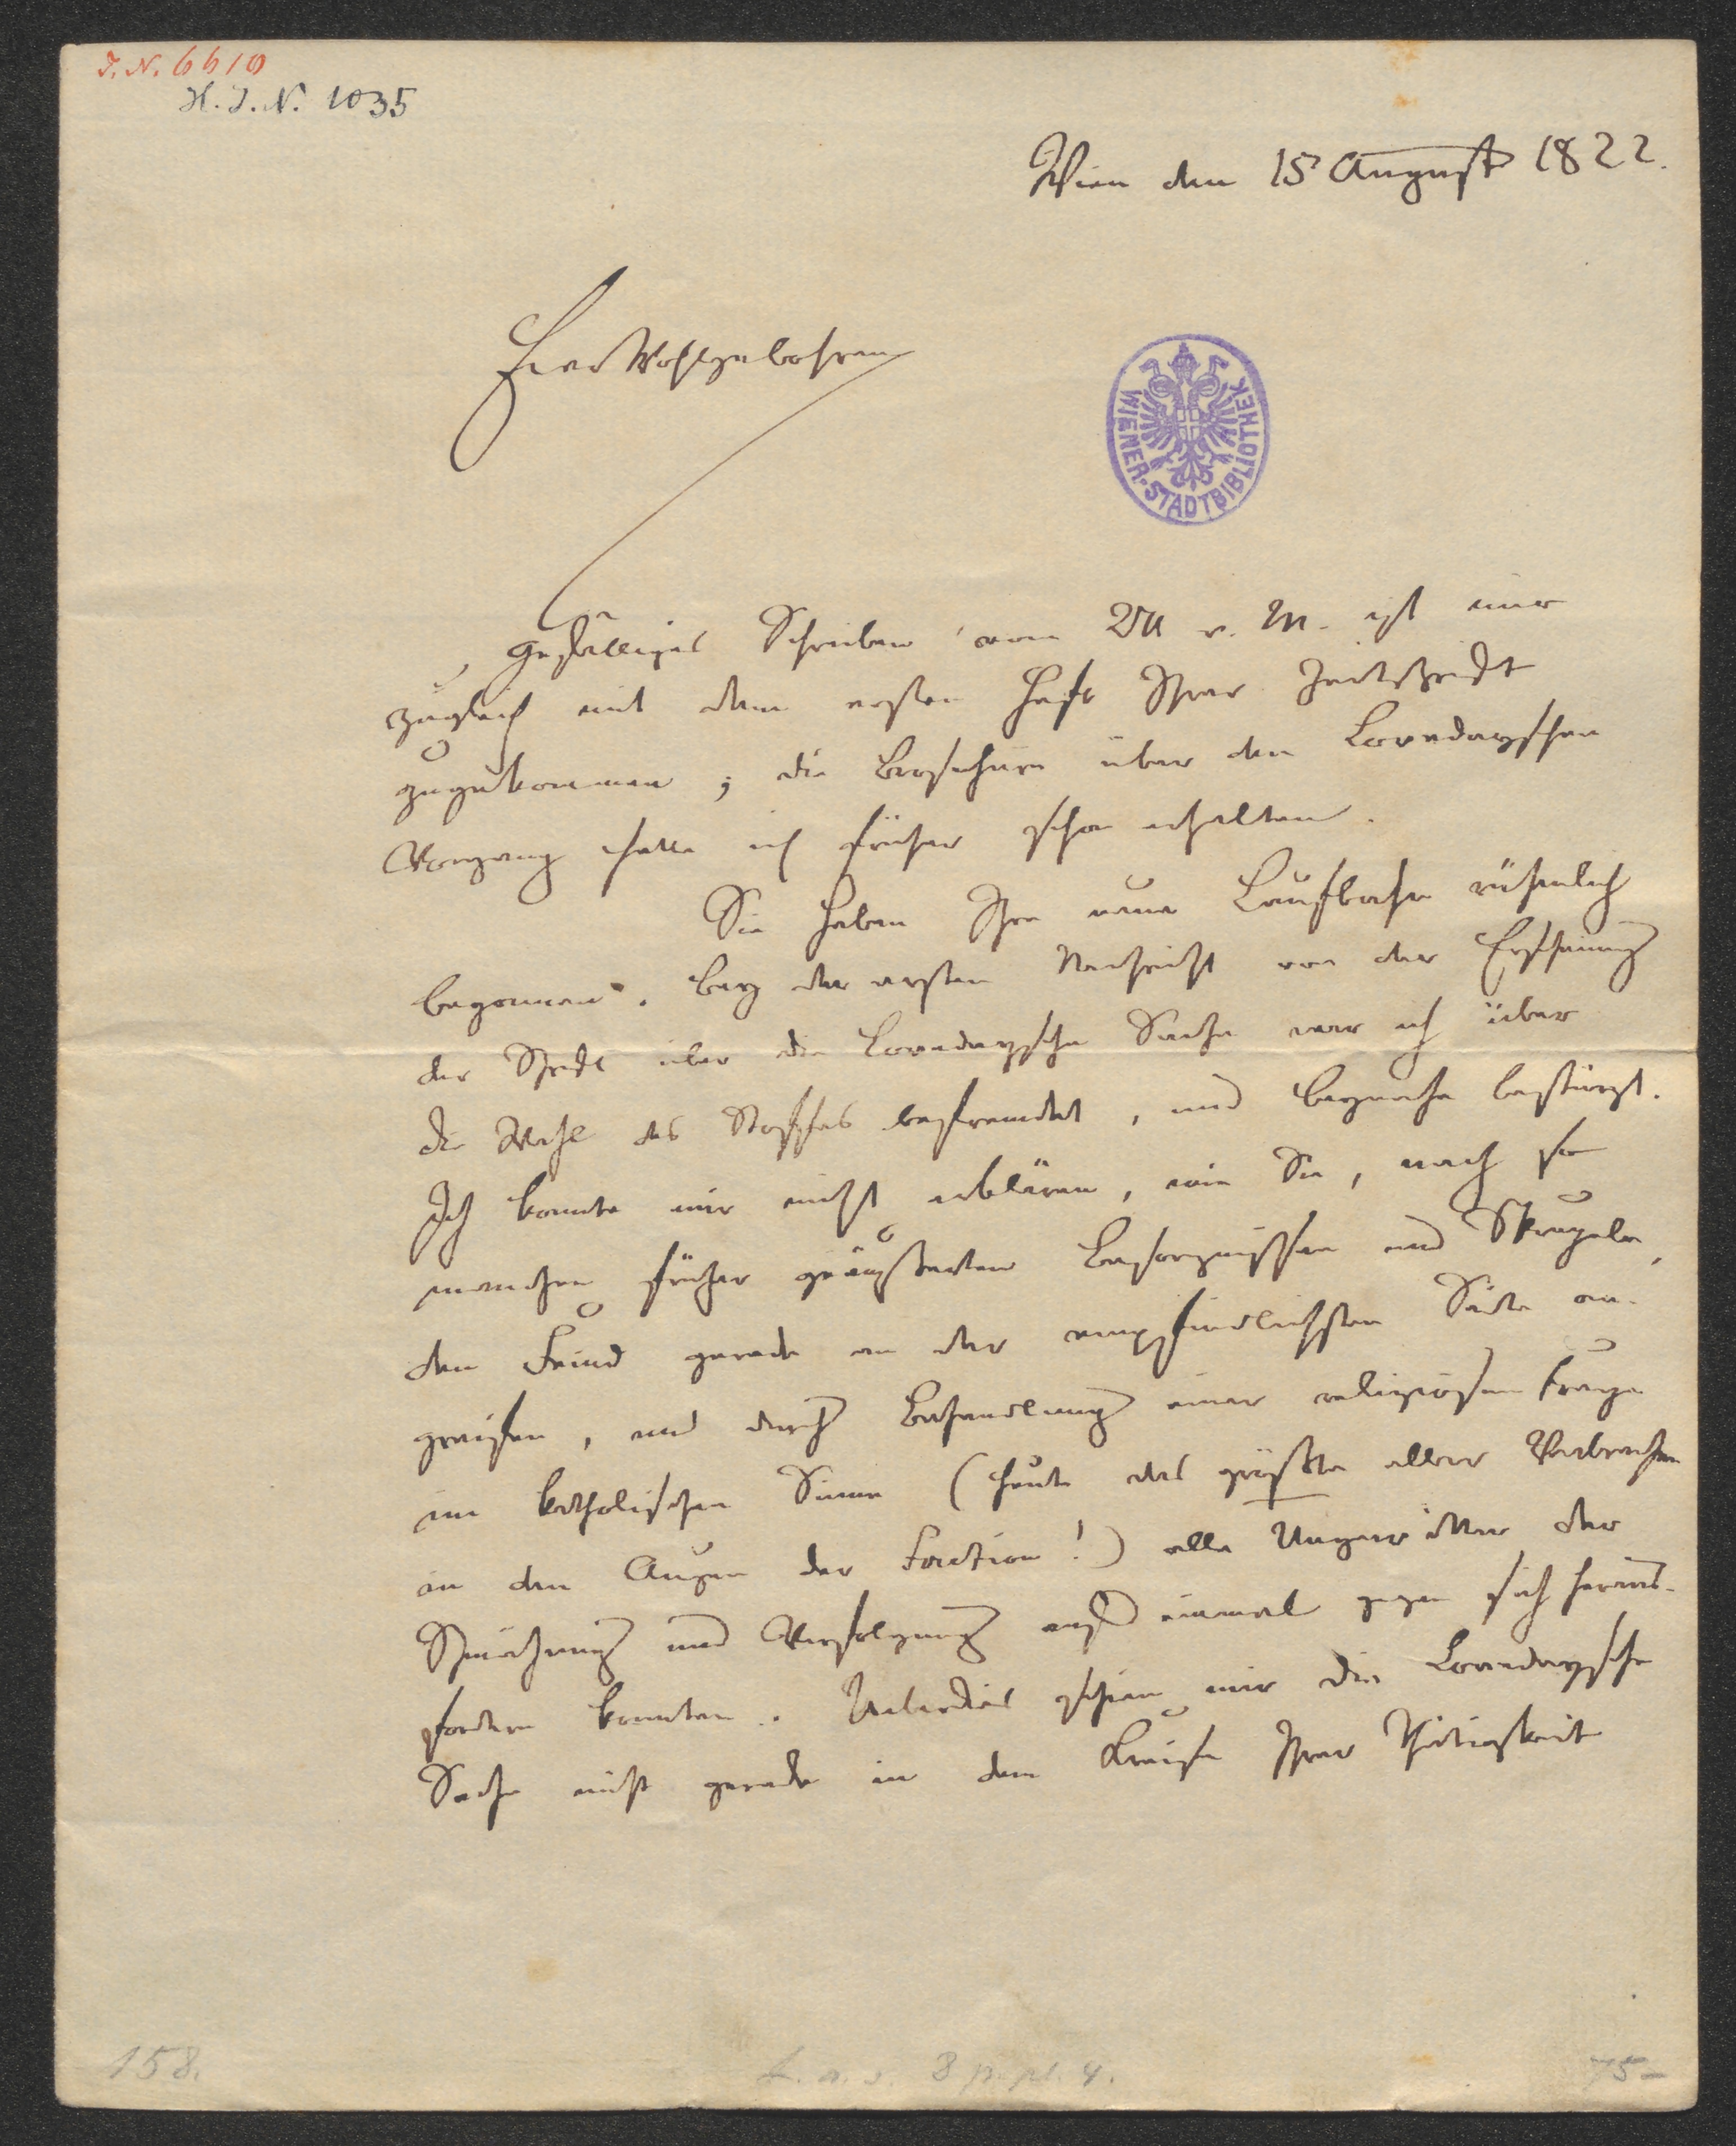 J. N. 6610
H. J. N. 1035
Wien den 15 August 1822.
Euer Wohlgebohren
WIENER-STADTBIBLIOTHEK
gefälliges Schreiben vom v. M. ist mir
zugleich mit dem ersten Heft Ihrer Zeitschrift
zugekommen; die Broschüre über den Lovedayschen
Vorgang hatte ich früher schon erhalten.
Sie haben Ihre neue Laufbahn rühmlich
begonnen. Bey der ersten Nachricht von der Erscheinung
der Schrift über die Lovedaysche Sache war ich über
die Wahl des Stoffes befremdet, und beynahe bestürzt.
Ich konnte mir nicht erklären, wie Sie, nach so
manchen früher geäußerten Besorgnissen und Skrupeln,
den Feind gerade an der empfindlichsten Seite an-
greifen, und durch Behandlung einer religiösen Frage
im katholischen Sinne (heute das größte aller Verbrechen
in den Augen der Faction!) alle Ungewitter der
Schmähung und Verfolgung auf einmal gegen sich heraus-
fordern konnten. Ueberdies schien mir die Lovedaysche
Sache nicht gerade in dem Kreise Ihrer Thätigkeit
158.
L. a. s. 3 p. pl. 4.
75-